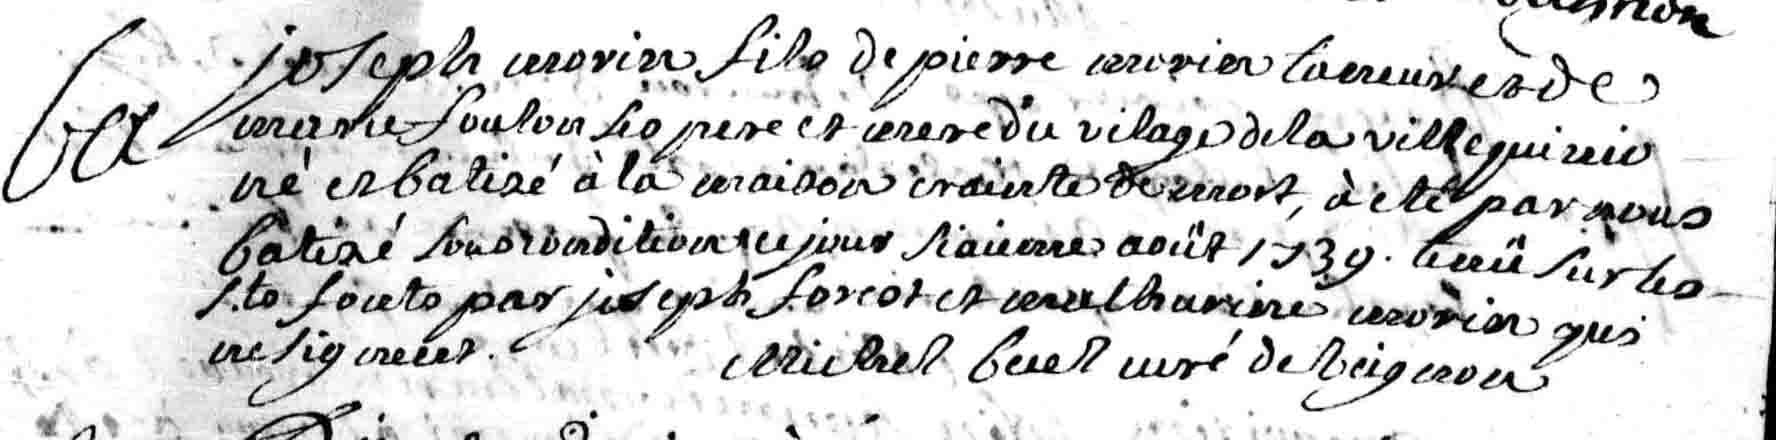 joseph morin fils de pierre morin lameur et de
marie foulon ses pere et mere du vilage de la ville quinio
né et batizé à la maison crainte de mort, à eté par nous
batizé sous condition ce jour sixieme août 1739. tenû sur les
sts fonts par joseph forest et mathurine morin qui
ne signent. Michel buel curé de beignon